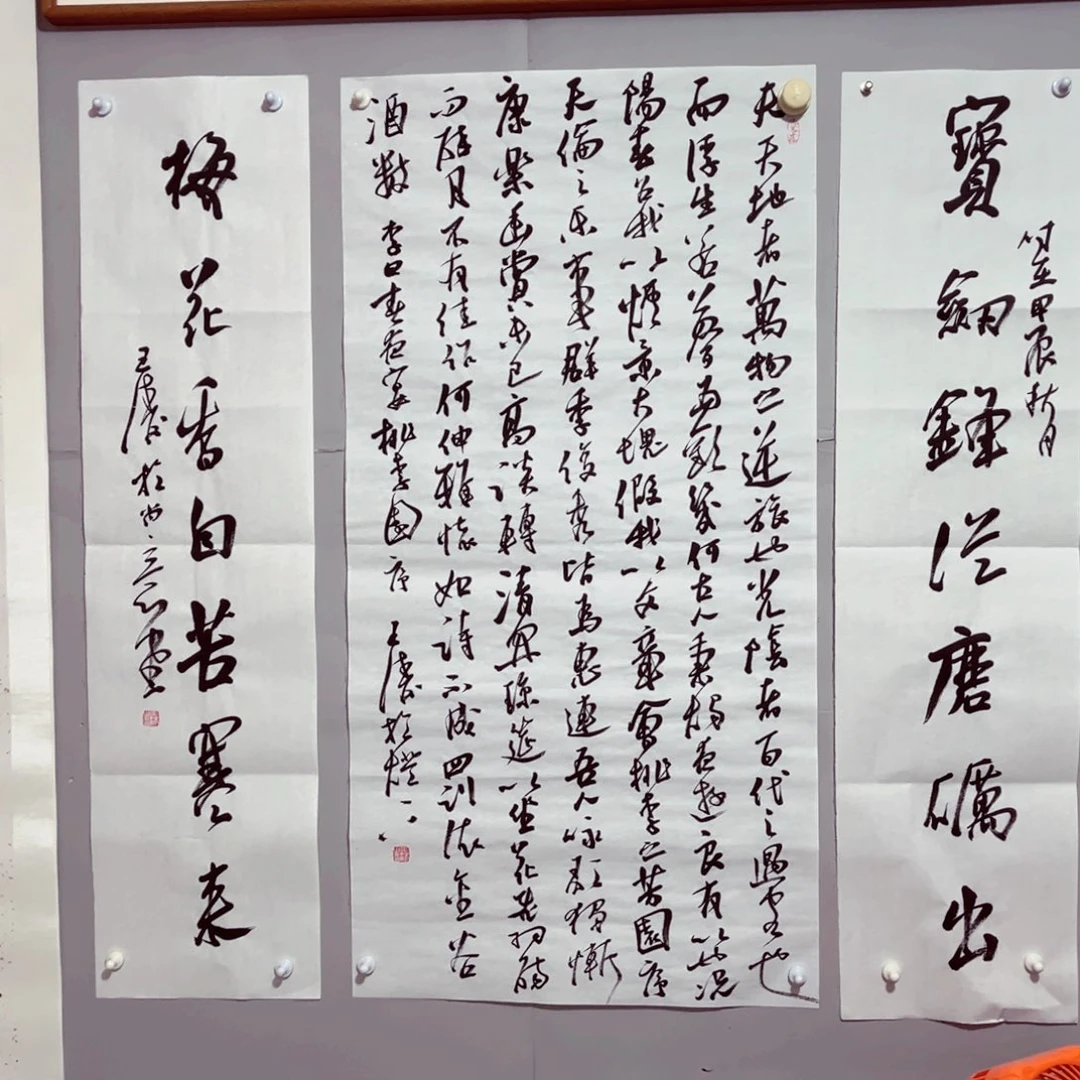 時在甲辰秋月
寶劍鋒從磨礪出
夫天地者萬物之逆旅也光陰者百代之過客也
而浮生若夢為歡幾何古人秉燭夜遊良有以也況
陽春召我以煙景大塊假我以文章會桃李之芳園序
天倫之樂事群季俊秀皆為惠連吾人詠歌獨慚
康樂幽賞未已高談轉清開瓊筵以坐花飛羽觴
而醉月不有佳作何伸雅懷如詩不成罰依金谷
酒數 李白春夜宴桃李園序 王濤於燈下
梅花香自苦寒來
王濤於